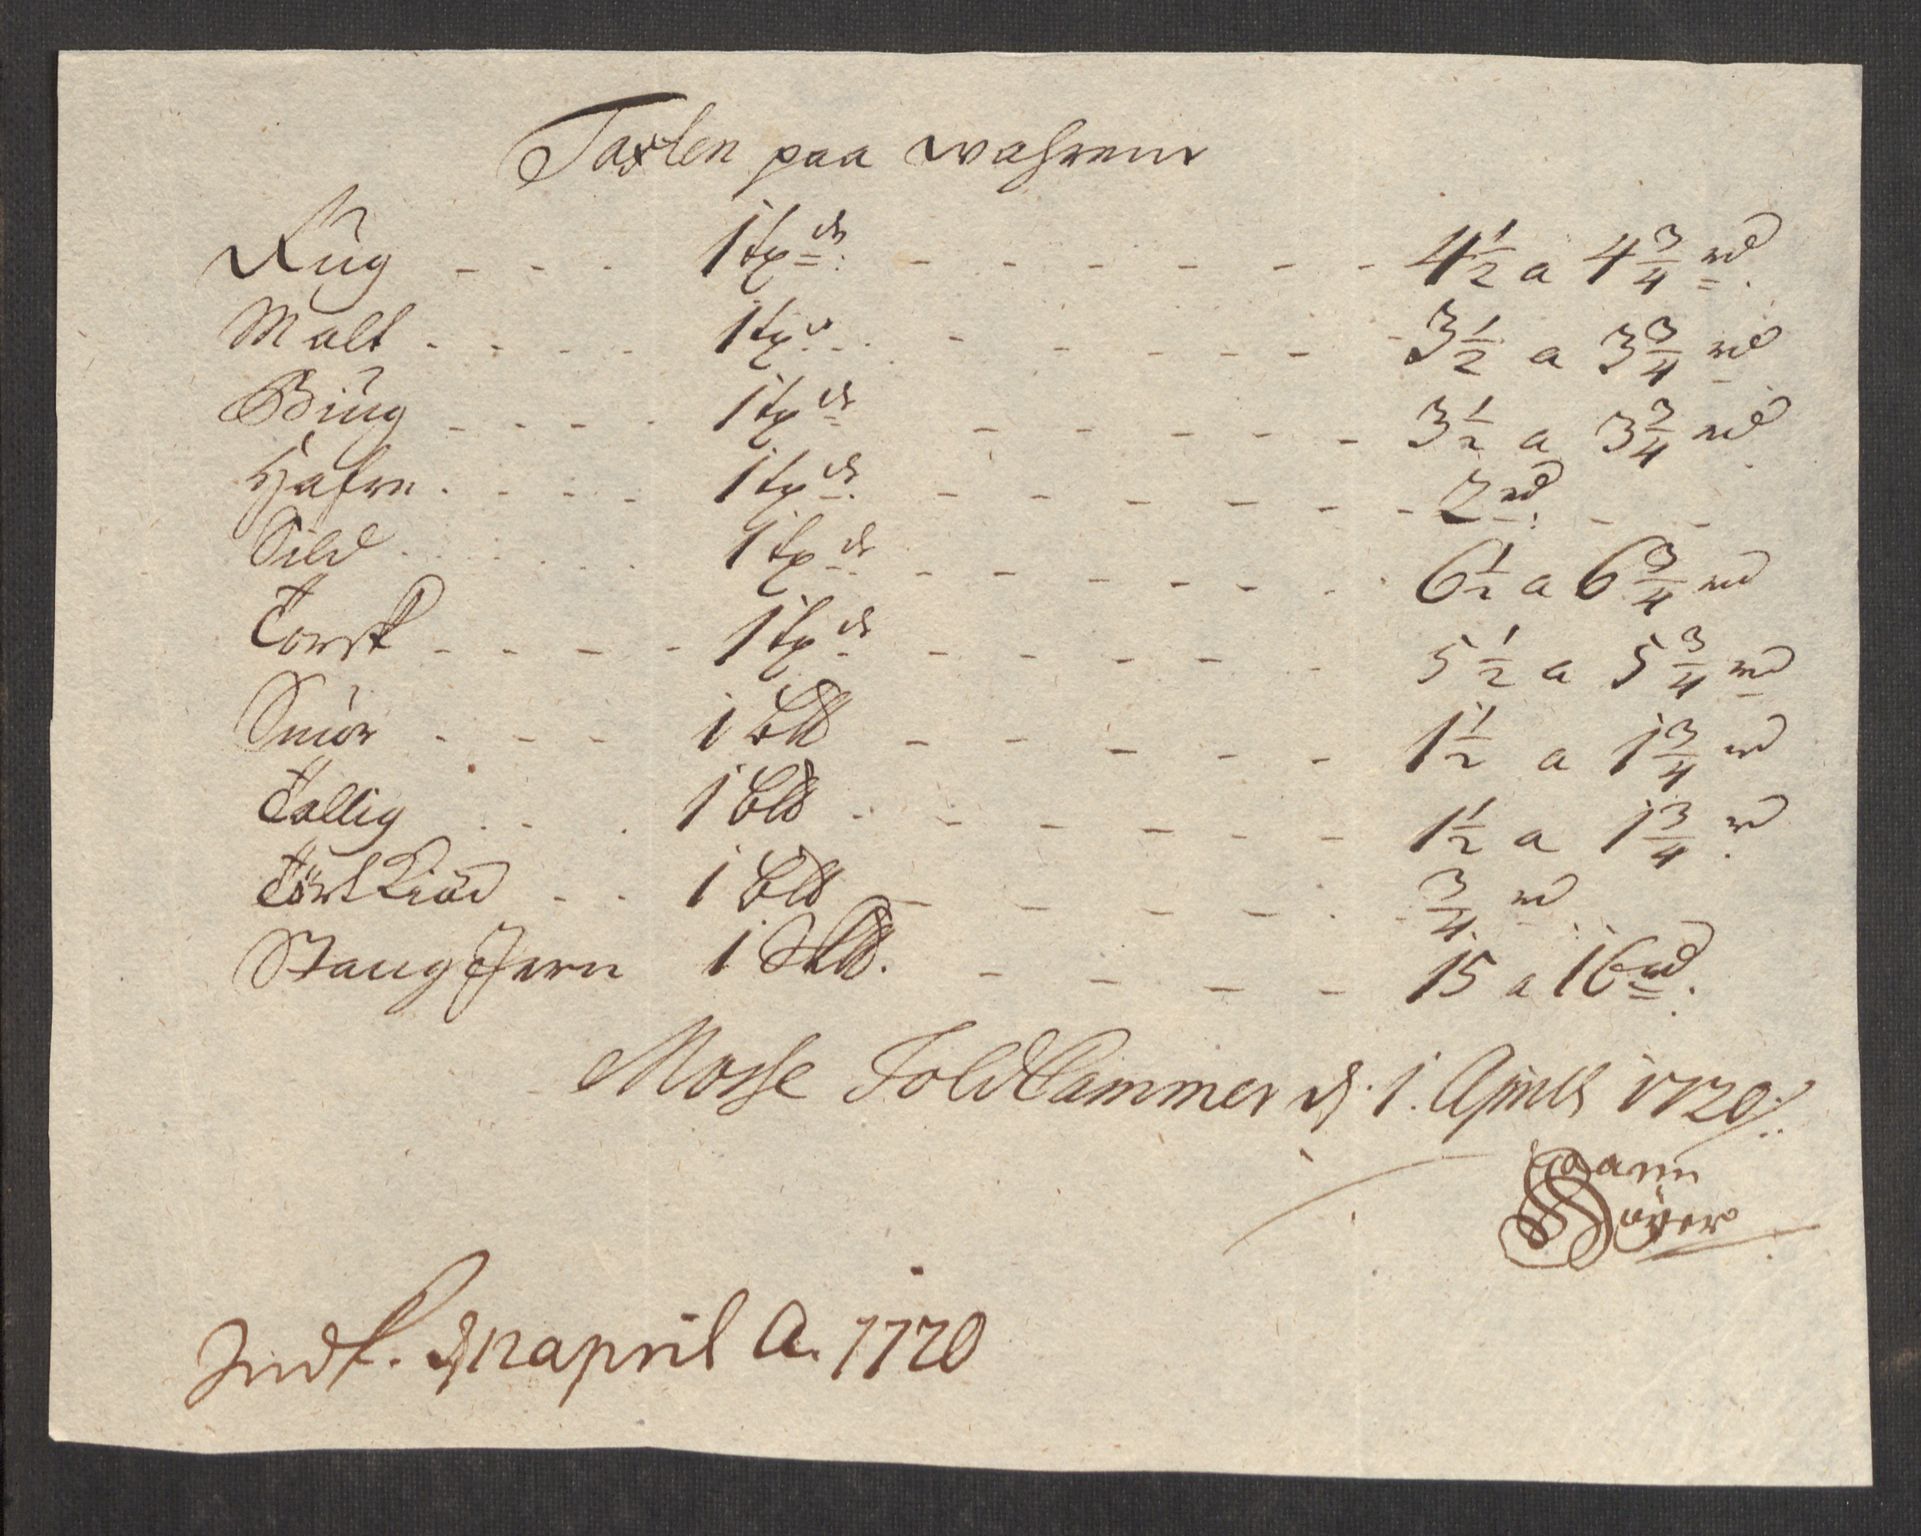 Taxten paa wahrene
Rug - - - 1 tønde - - - - - - 4 1/2 a 4 3/4 rd.
Malt - - - - 1 tønde - - - - - 3 1/2 a 3 3/4 rd
Biug - - - - 1 tønde - - - - - 3 1/2 a 3 3/4 rd
Hafre - - - - 1 tønde - - - - - - 2 rd. - -
Sild - - - - 1 tønde - - - - - - 6 1/2 a 6 3/4 rd
Torsk - - - - - 1 tønde - - - - - 5 1/2 a 5 3/4 rd
Smör - - - - 1 b℔ - - - - - 1 1/2 a 1 3/4 rd
Tallig - - - 1 b℔ - - - - - - 1 1/2 a 1 3/4 rd
Tört Kiöd - - 1 b℔ - - - - - 3/4 rd
Stang Jern 1 Sk℔. - - - - 15 a 16 rd.
Mosse Toldkammer d. 1. Aprill 1720
Höyer
Indk. d. 12 april A. 1720